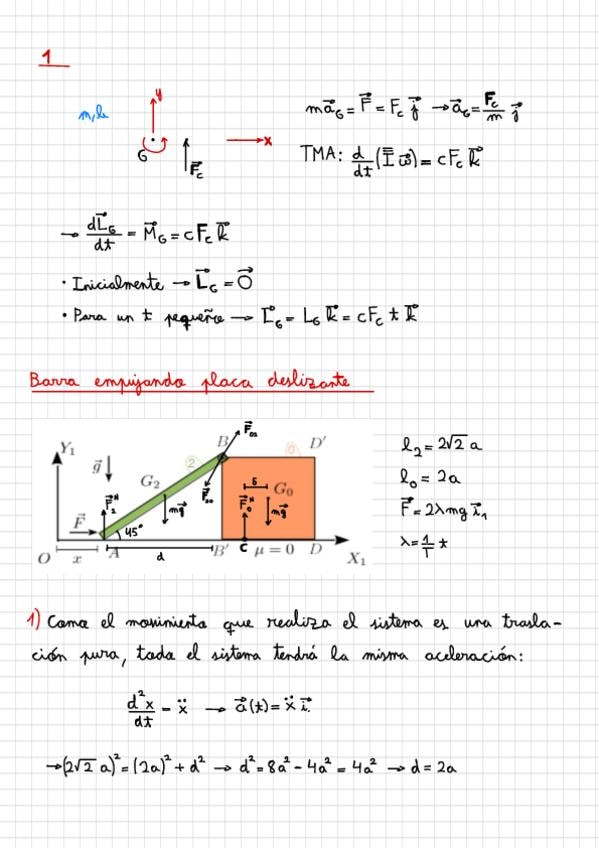 1
m, l
y
G
x
F⃗c
ma⃗G = F⃗ = Fc j⃗ → a⃗G = Fc/m j⃗
TMA: d/dt (I̿ ω⃗) = cFc k⃗
→ dL⃗G/dt = M⃗G = cFc k⃗
· Inicialmente → L⃗G = 0⃗
· Para un t pequeño → L⃗G = LG k⃗ = cFc t k⃗
Barra empujando placa deslizante
Y1
g⃗
G2
2
B
F⃗02
F⃗20
0
D'
G0
δ
F⃗2N
F⃗0N
mg⃗
mg⃗
F⃗
45°
O
x
A
d
B'
C
μ = 0
D
X1
l2 = 2√2 a
l0 = 2a
F⃗ = 2λmg i⃗1
λ = 1/T t
1) Como el movimiento que realiza el sistema es una trasla-
ción pura, todo el sistema tendrá la misma aceleración:
d²x/dt = ẍ → a⃗(t) = ẍ i⃗
→ (2√2 a)² = (2a)² + d² → d² = 8a² - 4a² = 4a² → d = 2a